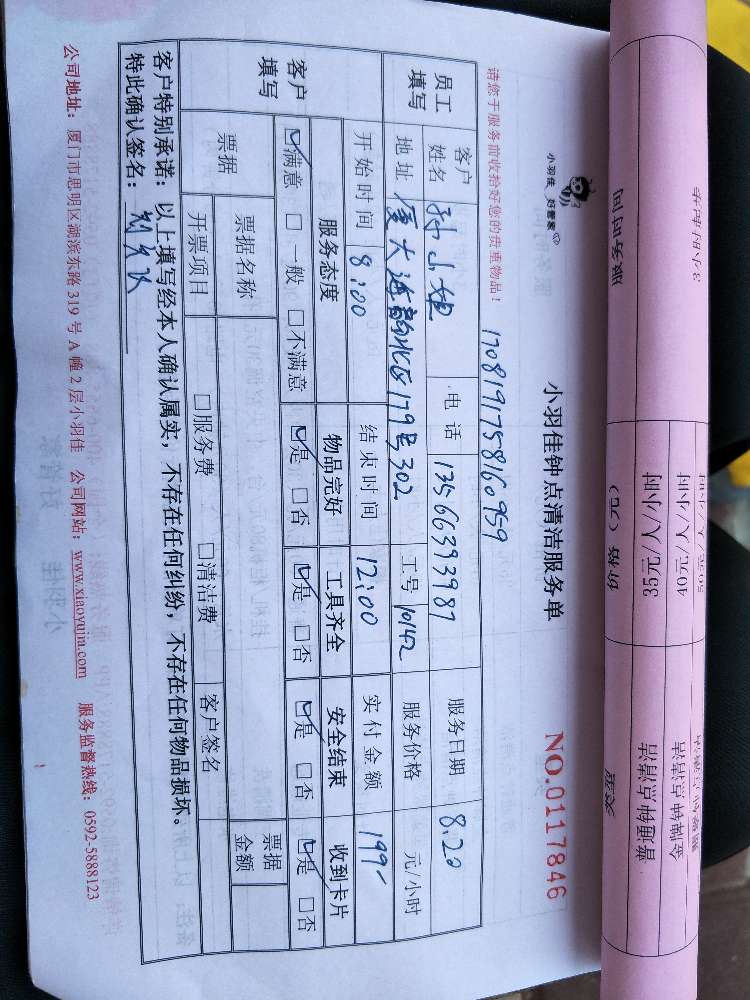 小羽佳 好管家
小羽佳钟点清洁服务单
NO.0117846
请您于服务前收拾好您的贵重物品！
1708191758160959
员工填写
客户姓名 孙小姐 电话 13566393987 服务日期 8.20
地址 厦大海韵北区179号302 工号 10142 服务价格 元/小时
开始时间 8:00 结束时间 12:00 实付金额 199-
客户填写
服务态度 物品完好 工具齐全 安全结束 收到卡片
☑满意 □一般 □不满意 ☑是 □否 ☑是 □否 ☑是 □否 ☑是 □否
票据 票据名称 票据金额
开票项目 □服务费 □清洁费 客户签名
客户特别承诺：以上填写经本人确认属实，不存在任何纠纷，不存在任何物品损坏。
特此确认签名：
公司地址：厦门市思明区湖滨东路 319 号 A 幢 2 层小羽佳 公司网站：www.xiaoyujia.com 服务监督热线：0592-5888123
服务时间
价格（元）
35元/人/小时
40元/人/小时
普通钟点清洁